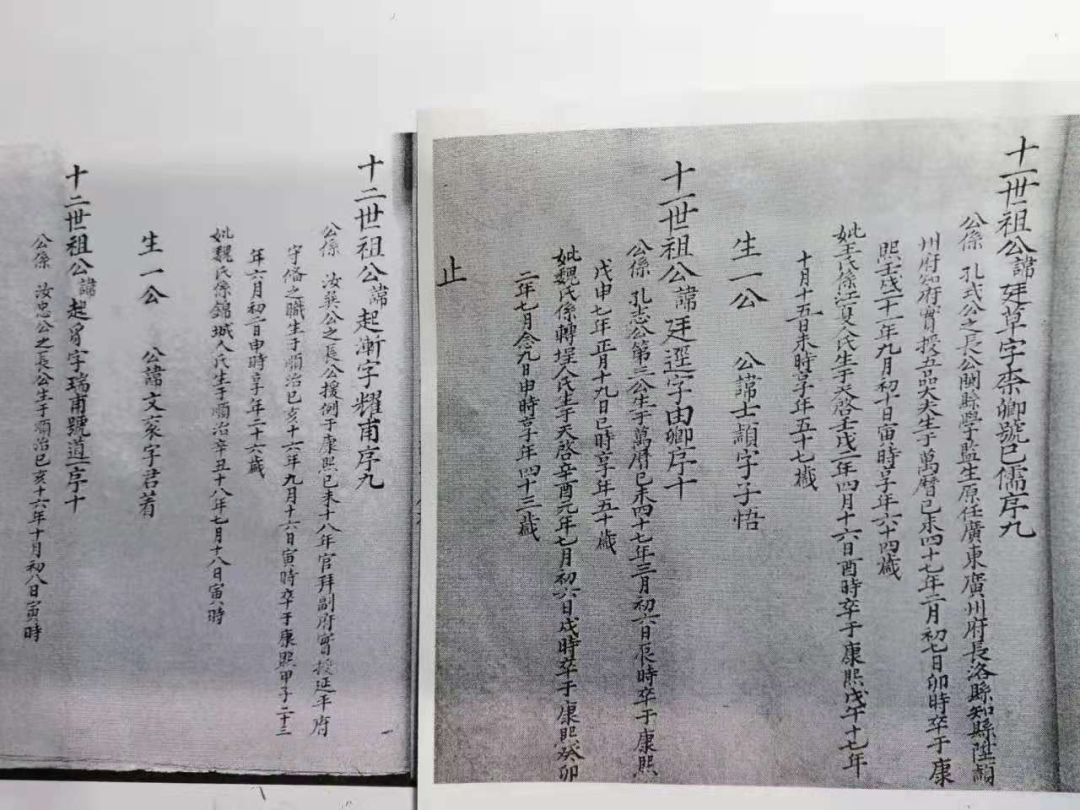 十一世祖公諱廷草字柰卿號已儒序九
公係 孔式公之長公閩縣學監生原任廣東廣州府長洛縣知縣陞頴
州府知府實授五品大夫生于萬曆已未四十七年二月初七日卯時卒于康
熙壬戌二十一年九月初十日寅時享年六十四歲
妣王氏係江夏人氏生于天啓壬戌二年四月十六日酉時卒于康熙戊午十七年
十月十五日未時享年五十七歲
生一公 公諱士顓字子悟
十一世祖公諱廷選字由卿序十
公係 孔志公第二公生于萬曆已未四十七年三月初六日辰時卒于康熙
戊申七年正月十九日巳時享年五十歲
妣魏氏係轉埕人氏生于天啓辛酉元年七月初六日戌時卒于康熙癸卯
二年七月念九日申時享年四十三歲
止
十二世祖公諱起漸字耀甫序九
公係 汝巽公之長公援例于康熙已未十八年官拜副府實授延平府
守俻之職生于順治已亥十六年九月十六日寅時卒于康熙甲子二十三
年六月初二日申時享年二十六歲
妣魏氏係錦城人氏生于順治辛丑十八年七月十八日寅時
生一公 公諱文家字君着
十二世祖公諱起胷字瑞甫號道一序十
公係 汝忠公之長公生于順治已亥十六年十月初八日寅時